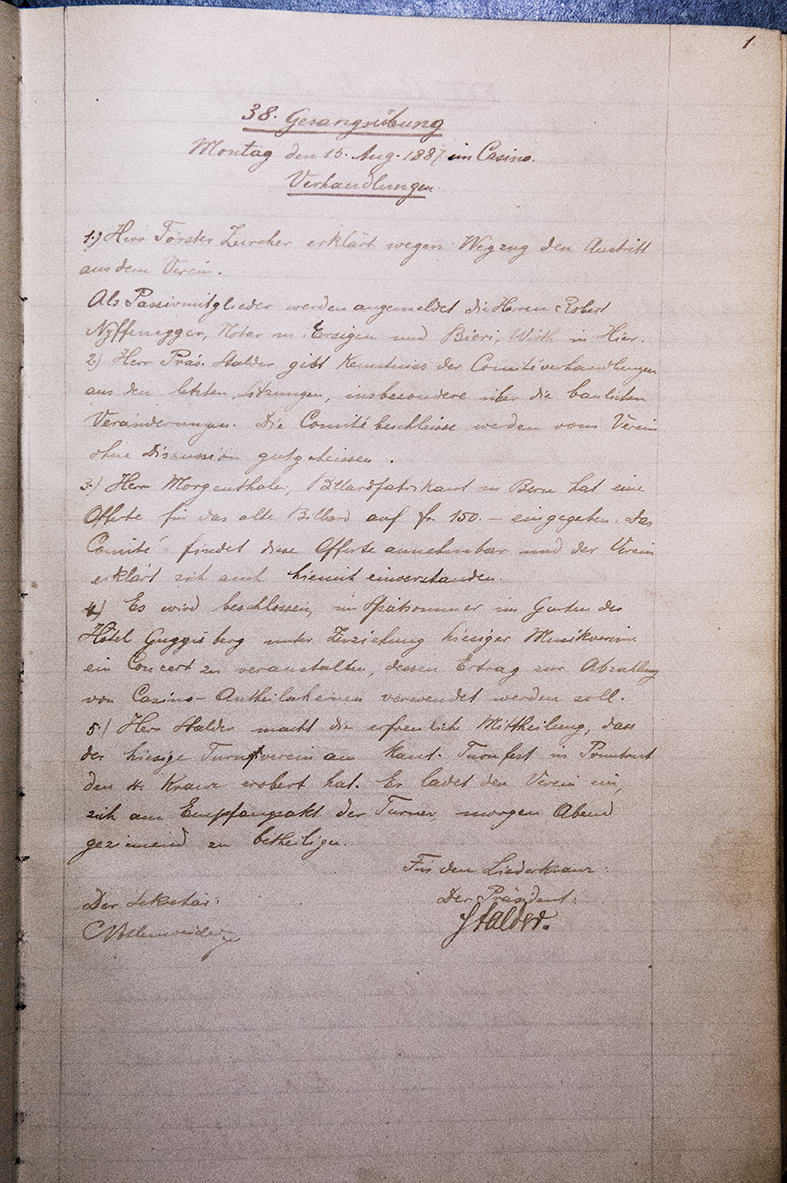 1
38. Gesangsübung
Montag den 15. Aug. 1887 im Casino.
Verhandlungen
1.) Herr Förster Zürcher erklärt wegen Wegzug den Austritt
aus dem Verein.
Als Passivmitglieder werden angemeldet die Herren Robert
Nyffenegger, Notar in Ersigen und Bieri, Wirth in Hier.
2) Herr Präs. Stalder gibt Kenntniss der Comitéverhandlungen
aus den letzten Sitzungen, insbesondere über die baulichen
Veränderungen. Die Comitébeschlüsse werden vom Verein
ohne Discussion gutgeheissen.
3.) Herr Morgenthaler, Billardfabrikant in Bern hat eine
Offerte für das alte Billard auf fr. 150.— eingegeben. Das
Comité findet diese Offerte annehmbar und der Verein
erklärt sich auch hiemit einverstanden.
4) Es wird beschlossen, im Spätsommer im Garten des
Hôtel Guggisberg unter Zuziehung hiesiger Musikvereine
ein Concert zu veranstalten, dessen Ertrag zur Abzahlung
von Casino-Antheilscheinen verwendet werden soll.
5.) Herr Stalder macht die erfreuliche Mittheilung, dass
der hiesige Turnverein am Kant. Turnfest in Pruntrut
den Kranz erobert hat. Er ladet den Verein ein,
sich am Empfangsakt der Turner morgen Abend
geziemend zu betheiligen.
Für den Liederkranz:
Der Sekretär: Der Präsident:
Stalder.